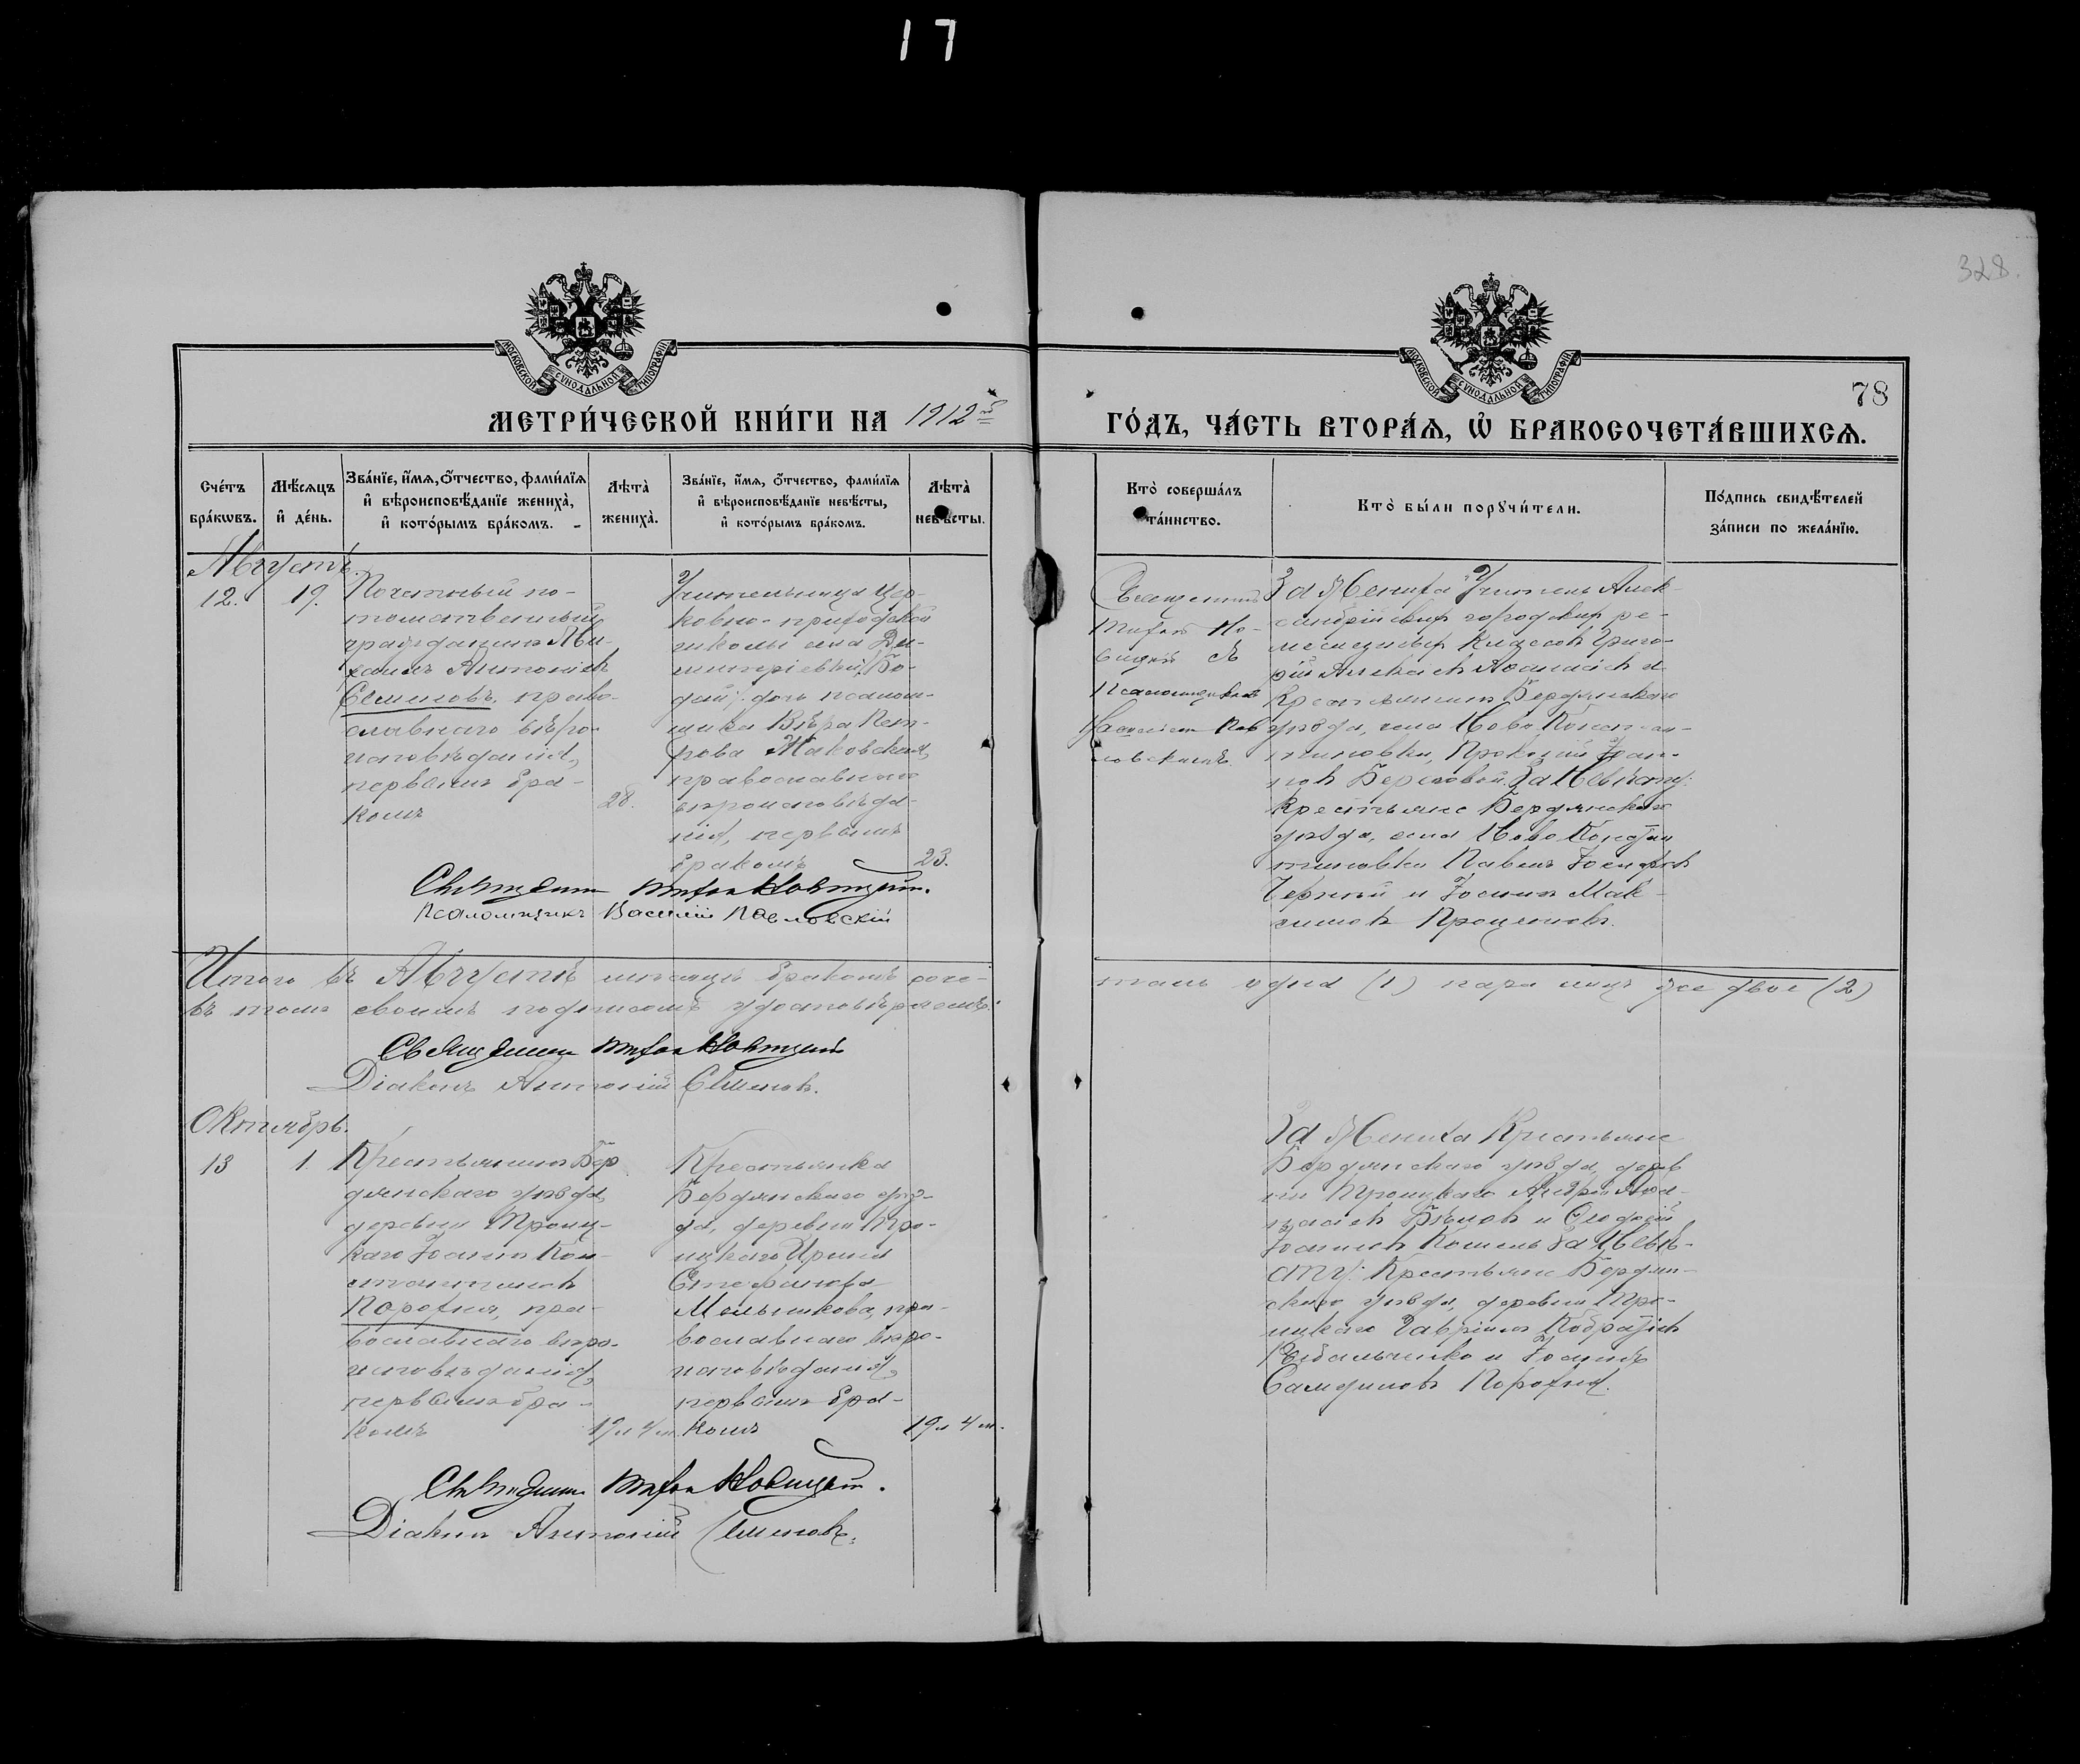 17
328.
МОСКОВСКОЙ СУНОДАЛЬНОЙ ТИПОГРАФІИ
МОСКОВСКОЙ СУНОДАЛЬНОЙ ТИПОГРАФІИ
78
МЕТРИ́ЧЕСКОЙ КНИ́ГИ НА 1912й
ГО́ДЪ, ЧА́СТЬ ВТОРА́Ѧ, Ѡ҆ БРАКОСОЧЕТА́ВШИХСѦ.
Сче́тъ
бра́кѡвъ.
Мѣ́сяцъ
и҆ де́нь.
Зва́нїе, и҆́мѧ, ѻ҆́тчество, фами́лїѧ
и҆ вѣроисповѣ́данїе жениха̀,
и҆ кото́рымъ бра́комъ.
Лѣта̀
жениха̀.
Зва́нїе, и҆́мѧ, ѻ҆́тчество, фами́лїѧ
и҆ вѣроисповѣ́данїе невѣ́сты,
и҆ кото́рымъ бра́комъ.
Лѣта̀
невѣ́сты.
Кто̀ соверша́лъ
та́инство.
Кто̀ бы́ли порꙋчи́тели.
По́дпись свидѣ́телей
за́писи по жела́нїю.
Августъ.
12.
19.
Почетный по-
томственный
гражданинъ Ми-
хаилъ Антоніевъ
Семеновъ, право-
славнаго вѣро-
исповѣданія,
первымъ бра-
комъ
28.
Учительница цер-
ковно-приходской
школы села Ди-
митріевки,
дочь псалом-
щика Вѣра Пет-
рова Маковская,
православнаго
вѣроисповѣда-
нія, первымъ
бракомъ
23.
Священникъ
Но-
вицкій съ
Псаломщикомъ
Василіем Пав-
ловскимъ.
За Жениха: Учитель Алек-
сандрійскихъ городскихъ ре-
месленныхъ классовъ Григо-
рій и
Крестьянинъ Бердянскаго
уѣзда, села Ново Констан-
тиновки, Прокопій Іоан-
новъ Береговой. За Невѣсту:
Крестьяне Бердянскаго
уѣзда, села Ново Констан
тиновки Павелъ Іосифовъ
Черный и Іоаннъ Мак-
симовъ Проценковъ.
Священникъ Новицкій.
Псаломщикъ Василій Павловскій
Итого въ Августѣ мѣсяцѣ бракомъ соче-
тань одна (1) пара лицъ же двое (2)
въ томъ своимъ подписомъ удостовѣряемъ:
Священникъ Новицкій
Діаконъ Антоній Семеновъ.
Октябрь.
13
1.
Крестьянинъ Бер
дянскаго уѣзда,
деревни Троиц-
каго Іоаннъ Кон-
стантиновъ
Порохня, пра-
вославнаго вѣро-
исповѣданія,
первымъ бра-
комъ
19 л 4 м.
Крестьянка
Бердянскаго уѣз-
да, деревни Тро-
ицкаго Ирина
Стефанова
Мельникова, пра-
вославнаго вѣро-
исповѣданія,
первымъ бра-
комъ
19 л 4 м.
За Жениха Крестьяне
Бердянскаго уѣзда, дерев
ни Троицкаго Андрей
Бѣловъ и Ѳеодосій
Іоанновъ За Невѣ-
сту: Крестьяне Бердян-
скаго уѣзда, деревни Тро-
ицкаго Гавріилъ
Рыбальченко и Іоаннъ
Порохня.
Священникъ Новицкій.
Діаконъ Антоній Семеновъ.